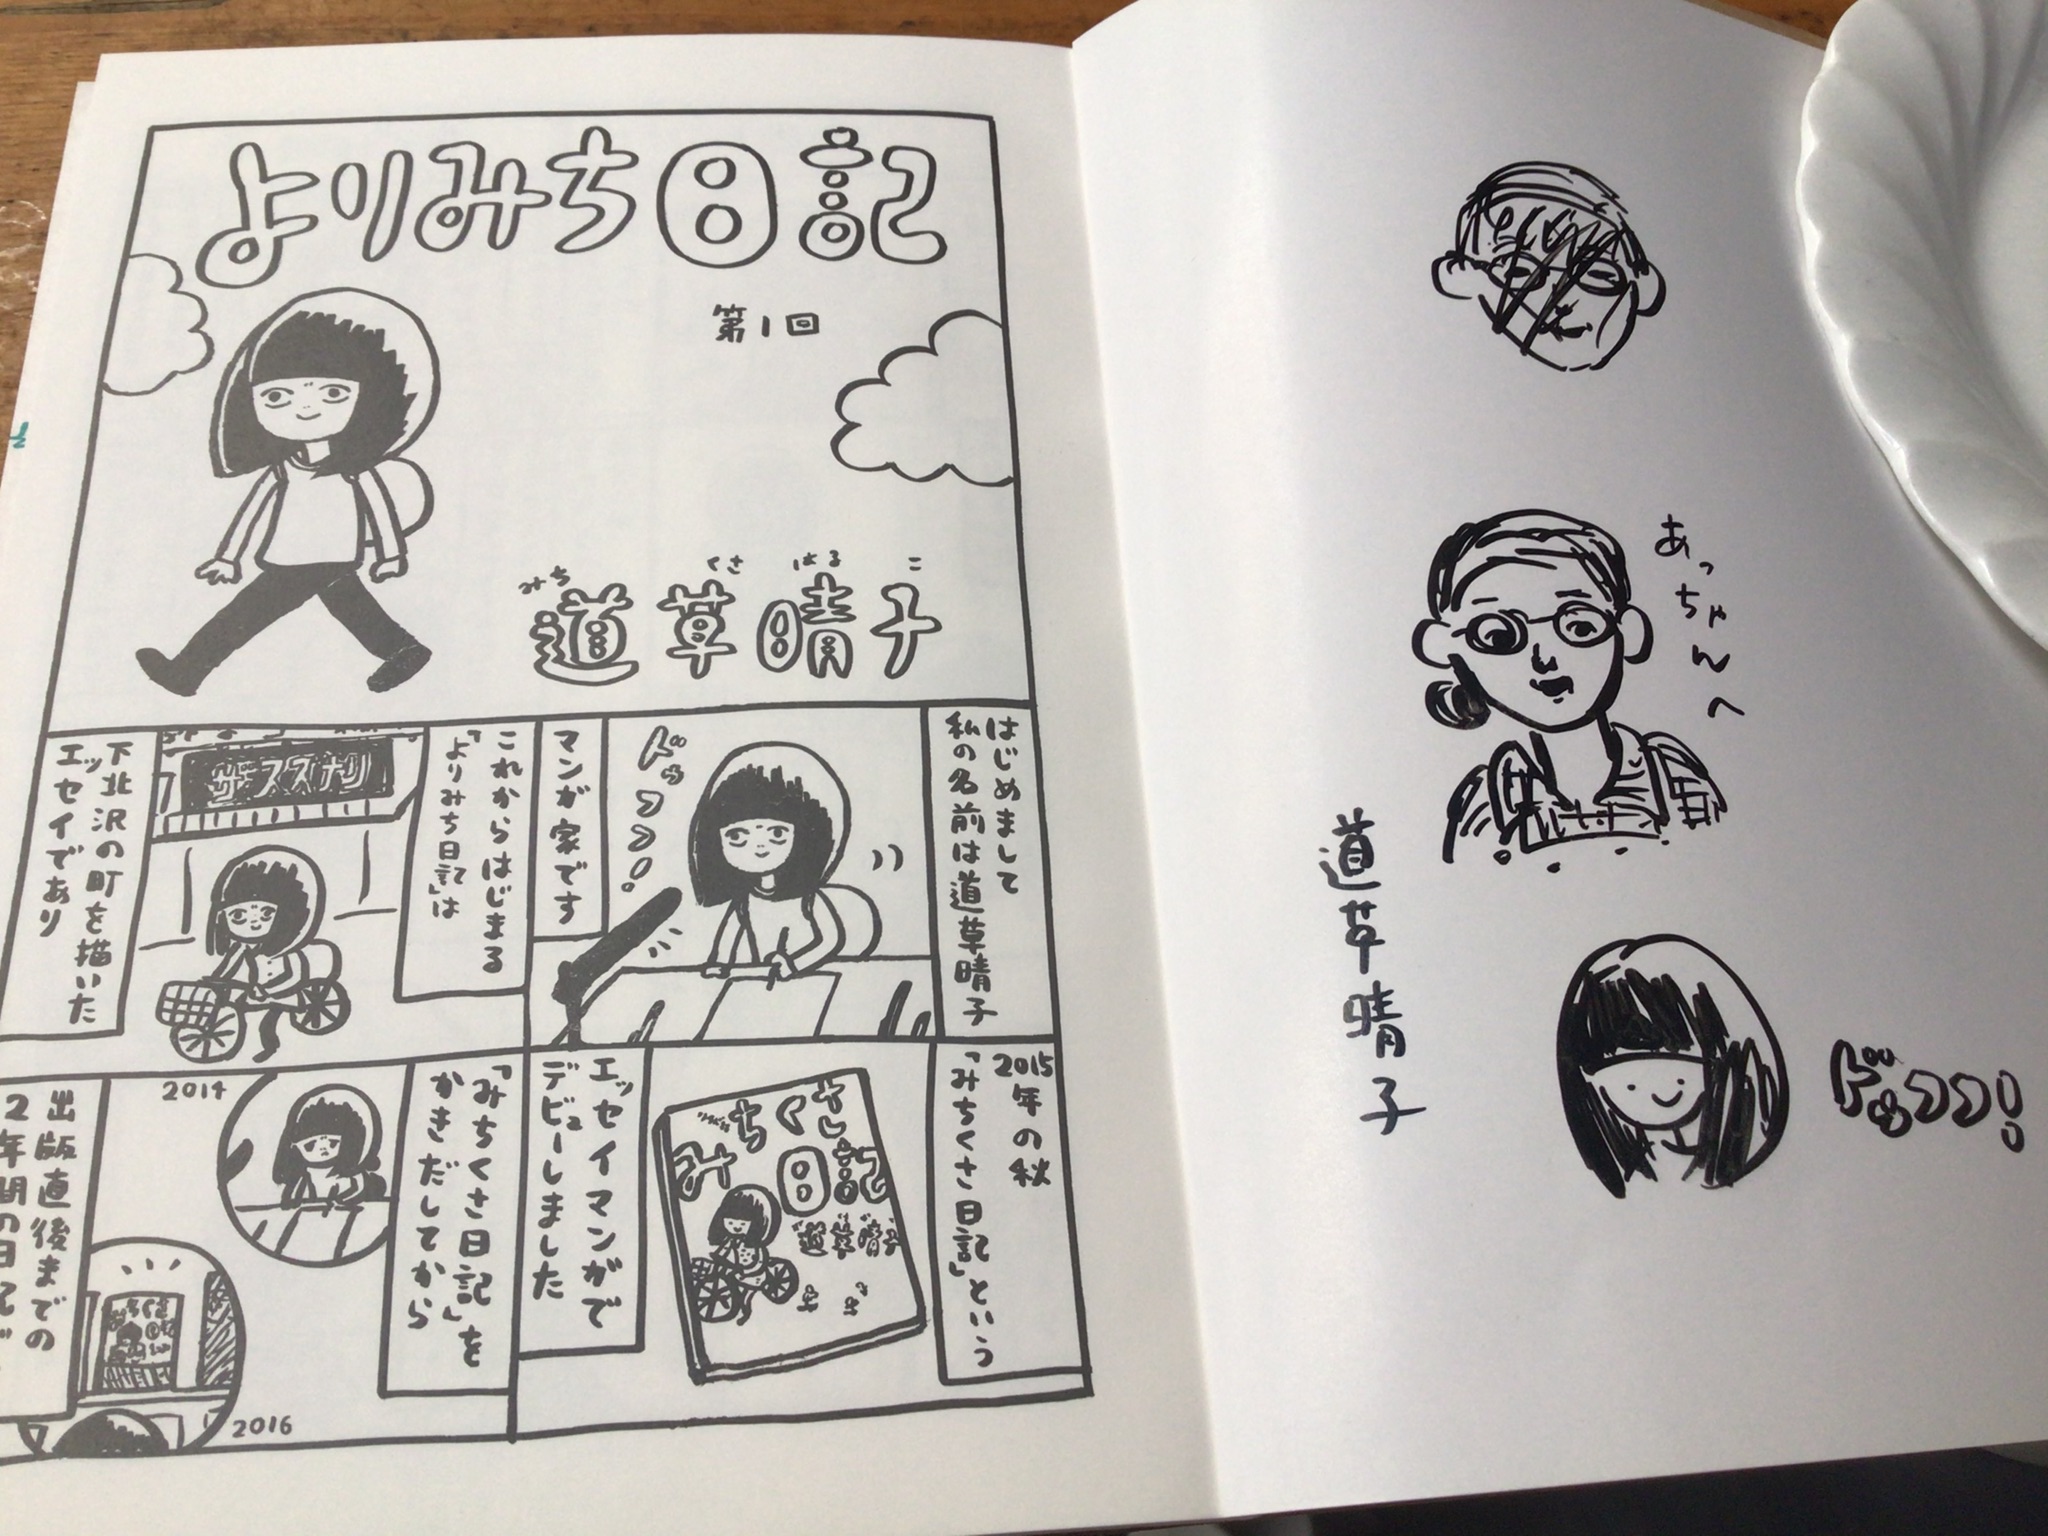 よりみち日記
第1回
みち くさ はる こ
道草晴子
はじめまして
私の名前は道草晴子
ドッコン!
マンガ家です
これからはじまる
「よりみち日記」は
ザ・スズナリ
下北沢の町を描いた
エッセイであり
2015年の秋
「みちくさ日記」という
みちくさ
日記
道草晴子
エッセイマンガで
デビューしました
「みちくさ日記」を
かきだしてから
2014
出版直後までの
2年間の日記
2016
あっちゃんへ
道草晴子
ドッコン!